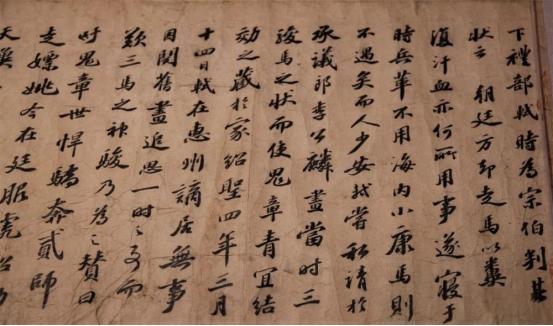 下禮部軾時為宗伯判其
狀云 朝廷方却走馬以糞
復汗血亦何所用事遂寢于
時兵革不用海內小康馬則
不遇矣而人少安軾嘗私請於
承議郎李公麟畫當時三
駿馬之狀而使鬼章青宜結
効之藏於家紹聖四年三月
十四日軾在惠州謫居無事
因閱舊畫追思一時之事而
歎三馬之神駿乃為之贊曰
吁鬼章世悍驕奔貳師
走嫖姚今在廷服虎
天